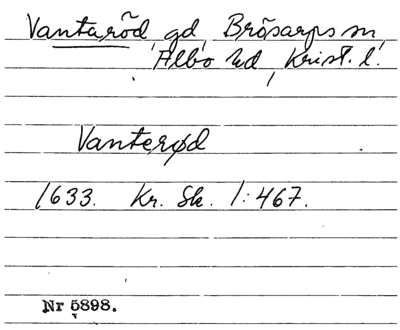 Vantaröd, gd, Brösarps sn,
Albo hd, Krist. l.
Vanterød
1633. Kr. Sk. 1:467.
Nr 5898.